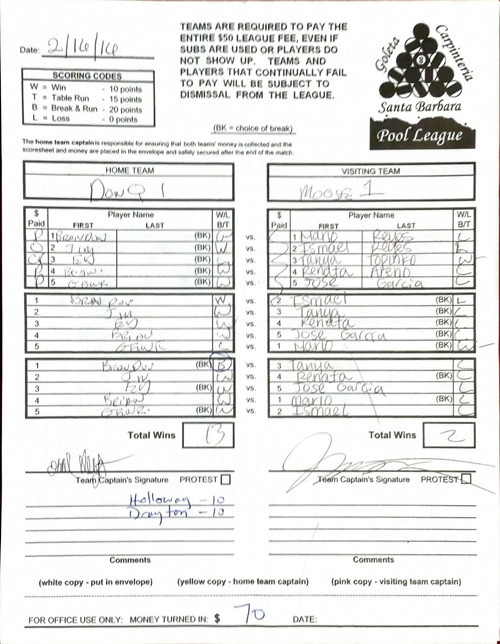 Date: 2/16/16
TEAMS ARE REQUIRED TO PAY THE
ENTIRE $50 LEAGUE FEE, EVEN IF
SUBS ARE USED OR PLAYERS DO
NOT SHOW UP. TEAMS AND
PLAYERS THAT CONTINUALLY FAIL
TO PAY WILL BE SUBJECT TO
DISMISSAL FROM THE LEAGUE.
Goleta
Carpinteria
Santa Barbara
Pool League
SCORING CODES
W = Win - 10 points
T = Table Run - 15 points
B = Break & Run - 20 points
L = Loss - 0 points
(BK = choice of break)
The home team captain is responsible for ensuring that both teams' money is collected and the
scoresheet and money are placed in the envelope and safely secured after the end of the match.
HOME TEAM VISITING TEAM
DonQ 1 Moose 1
$ Paid Player Name FIRST LAST W/L B/T $ Paid Player Name FIRST LAST W/L B/T
1 Brendon (BK) vs. 1 Mario Reyes
2 Jim (BK) W vs. 2 Ismael Reyes L
3 (BK) vs. 3 Tanya W
4 Brian (BK) W vs. 4 Renata L
5 (BK) W vs. 5 Jose Garcia L
1 W vs. 2 Ismael (BK) L
2 Jim W vs. 3 Tanya (BK) L
3 W vs. 4 Renata (BK) L
4 Brian W vs. 5 Jose Garcia (BK) L
5 L vs. 1 Mario (BK) W
1 (BK) B vs. 3 Tanya L
2 Jim W vs. 4 Renata (BK) L
3 (BK) W vs. 5 Jose Garcia L
4 Brian W vs. 1 Mario (BK) L
5 (BK) W vs. 2 Ismael L
Total Wins 13 Total Wins 2
Team Captain's Signature PROTEST Team Captain's Signature PROTEST
Holloway - 10
Drayton - 10
Comments Comments
(white copy - put in envelope) (yellow copy - home team captain) (pink copy - visiting team captain)
FOR OFFICE USE ONLY: MONEY TURNED IN: $ 70 DATE: